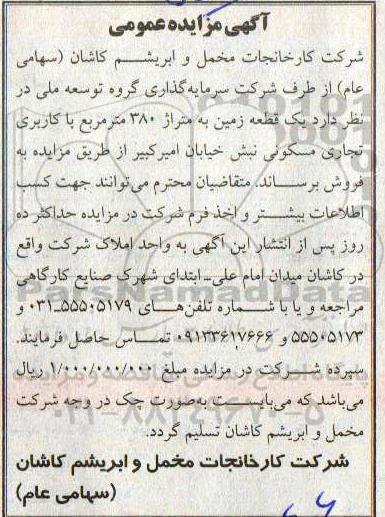 آگهی مزایده عمومی
شرکت کارخانجات مخمل و ابریشم کاشان (سهامی
عام) از طرف شرکت سرمایه‌گذاری گروه توسعه ملی در
نظر دارد یک قطعه زمین به متراژ ۳۸۰ مترمربع با کاربری
تجاری مسکونی نبش خیابان امیرکبیر از طریق مزایده به
فروش برساند. متقاضیان محترم می‌توانند جهت کسب
اطلاعات بیشتر و اخذ فرم شرکت در مزایده حداکثر ده
روز پس از انتشار این آگهی به واحد املاک شرکت واقع
در کاشان میدان امام علی-ابتدای شهرک صنایع کارگاهی
مراجعه و یا با شماره تلفن‌های ۵۵۵۰۵۱۷۹-۰۳۱ و
۵۵۵۰۵۱۷۳ و ۰۹۱۳۳۶۱۷۶۶۶ تماس حاصل فرمایند.
سپرده شرکت در مزایده مبلغ ۱/۰۰۰/۰۰۰/۰۰۰ ریال
می‌باشد که می‌بایست به‌صورت چک در وجه شرکت
مخمل و ابریشم کاشان تسلیم گردد.
شرکت کارخانجات مخمل و ابریشم کاشان
(سهامی عام)